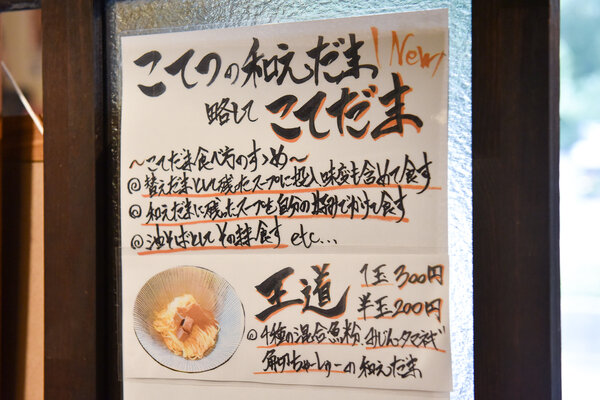 こてつの和えだま！New！
略して こてだま
～こてだま食べ方のすゝめ～
◎替えだまとして残ったスープに投入味変も含めて食す
◎和えだまに残ったスープを自分の采配でかけて食す
◎油そばとしてその様食す etc...
王道 1玉300円
半玉200円
◎4種の混合魚粉、みじんタマネギ
角切ちゃーしゅーの和えだま